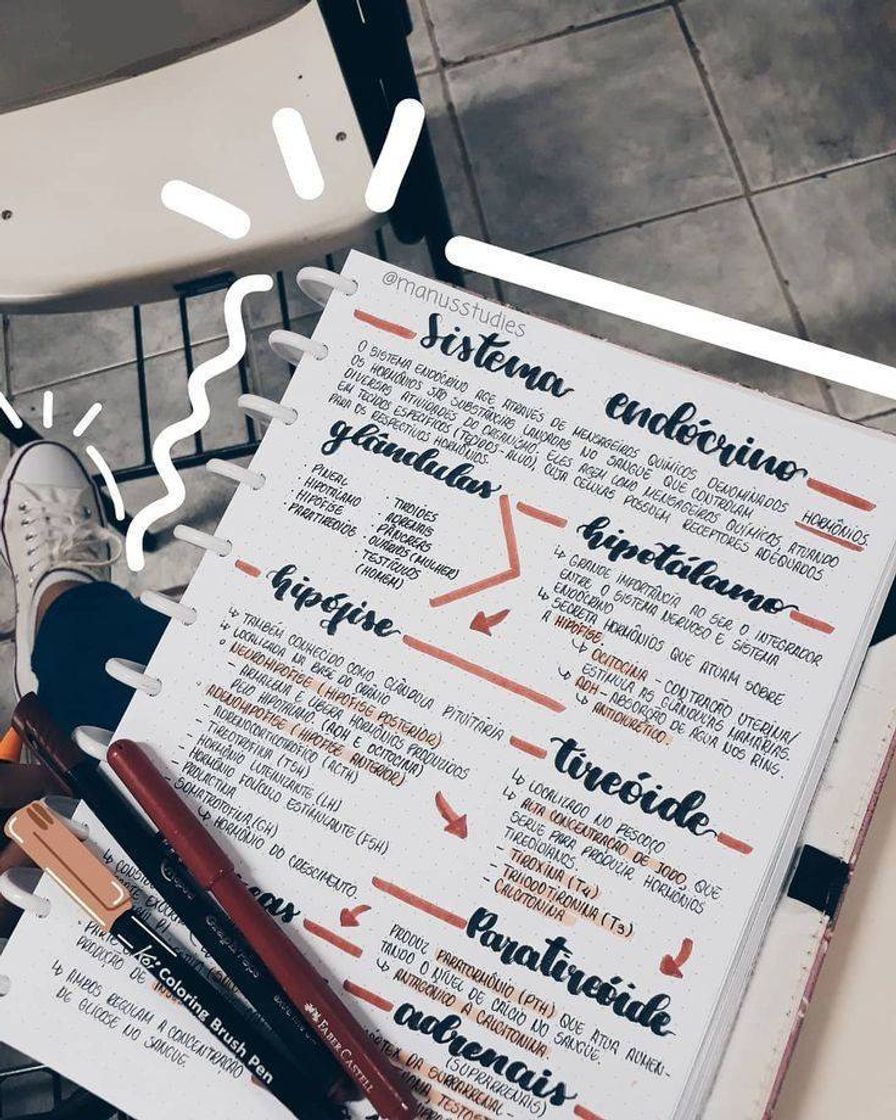 @manusstudies
Sistema endócrino
O SISTEMA ENDÓCRINO AGE ATRAVÉS DE MENSAGEIROS QUÍMICOS DENOMINADOS HORMÔNIOS
OS HORMÔNIOS SÃO SUBSTÂNCIAS LANÇADAS NO SANGUE QUE CONTROLAM
DIVERSAS ATIVIDADES DO ORGANISMO, ELES AGEM COMO MENSAGEIROS QUÍMICOS ATUANDO
EM TECIDOS ESPECÍFICOS (TECIDOS-ALVO), CUJA CELULAS POSSUEM RECEPTORES ADEQUADOS
PARA OS RESPECTIVOS HORMÔNIOS.
glândulas
· PINEAL
· HIPOTÁLAMO
· HIPÓFISE
· PARATIREOIDE
· TIROIDES
· ADRENAIS
· PÂNCREAS
· OVÁRIOS (MULHER)
TESTÍCULOS
(HOMEM)
hipotálamo
↳ GRANDE IMPORTÂNCIA AO SER O INTEGRADOR
ENTRE O SISTEMA NERVOSO E SISTEMA
ENDÓCRINO
↳ SECRETA HORMÔNIOS QUE ATUAM SOBRE
A HIPÓFISE
↳ OCITOCINA - CONTRAÇÃO UTERINA/
ESTIMULA AS GLÂNDULAS MAMÁRIAS.
↳ ADH - ABSORÇÃO DE ÁGUA NOS RINS.
↳ ANTIDIURÉTICO.
hipófise
↳ TAMBÉM CONHECIDO COMO GLÂNDULA PITUITÁRIA
↳ LOCALIZADA NA BASE DO CRÂNIO
NEUROHIPÓFISE (HIPÓFISE POSTERIOR)
- ARMAZENA E LIBERA HORMÔNIOS PRODUZIDOS
PELO HIPOTÁLAMO. (ADH E OCITOCINA)
ADENOHIPÓFISE (HIPÓFISE ANTERIOR)
- ADRENOCORTICOTRÓFICO (ACTH)
- TIREOTROFINA (TSH)
- HORMÔNIO LUTEINIZANTE (LH)
- HORMÔNIO FOLÍCULO ESTIMULANTE (FSH)
- PROLACTINA
- SOMATROTOFINA (GH)
↳ HORMÔNIO DO CRESCIMENTO.
tireóide
↳ LOCALIZADO NO PESCOÇO
↳ ALTA CONCENTRAÇÃO DE IODO, QUE
SERVE PARA PRODUZIR HORMÔNIOS
TIREOIDIANOS.
- TIROXINA (T4)
- TRIIODOTIRONINA (T3)
- CALCITONINA
Paratireóide
PRODUZ PARATORMÔNIO (PTH) QUE ATUA AUMEN-
TANDO O NÍVEL DE CÁLCIO NO SANGUE.
↳ ANTAGÔNICO À CALCITONINA.
adrenais
(SUPRARRENAIS)
DA SUPRARRENAL -
PARTE
PRODUÇÃO DE
↳ AMBOS REGULAM A CONCENTRAÇÃO
DE GLICOSE NO SANGUE.
Koi Coloring Brush Pen
FABER CASTELL